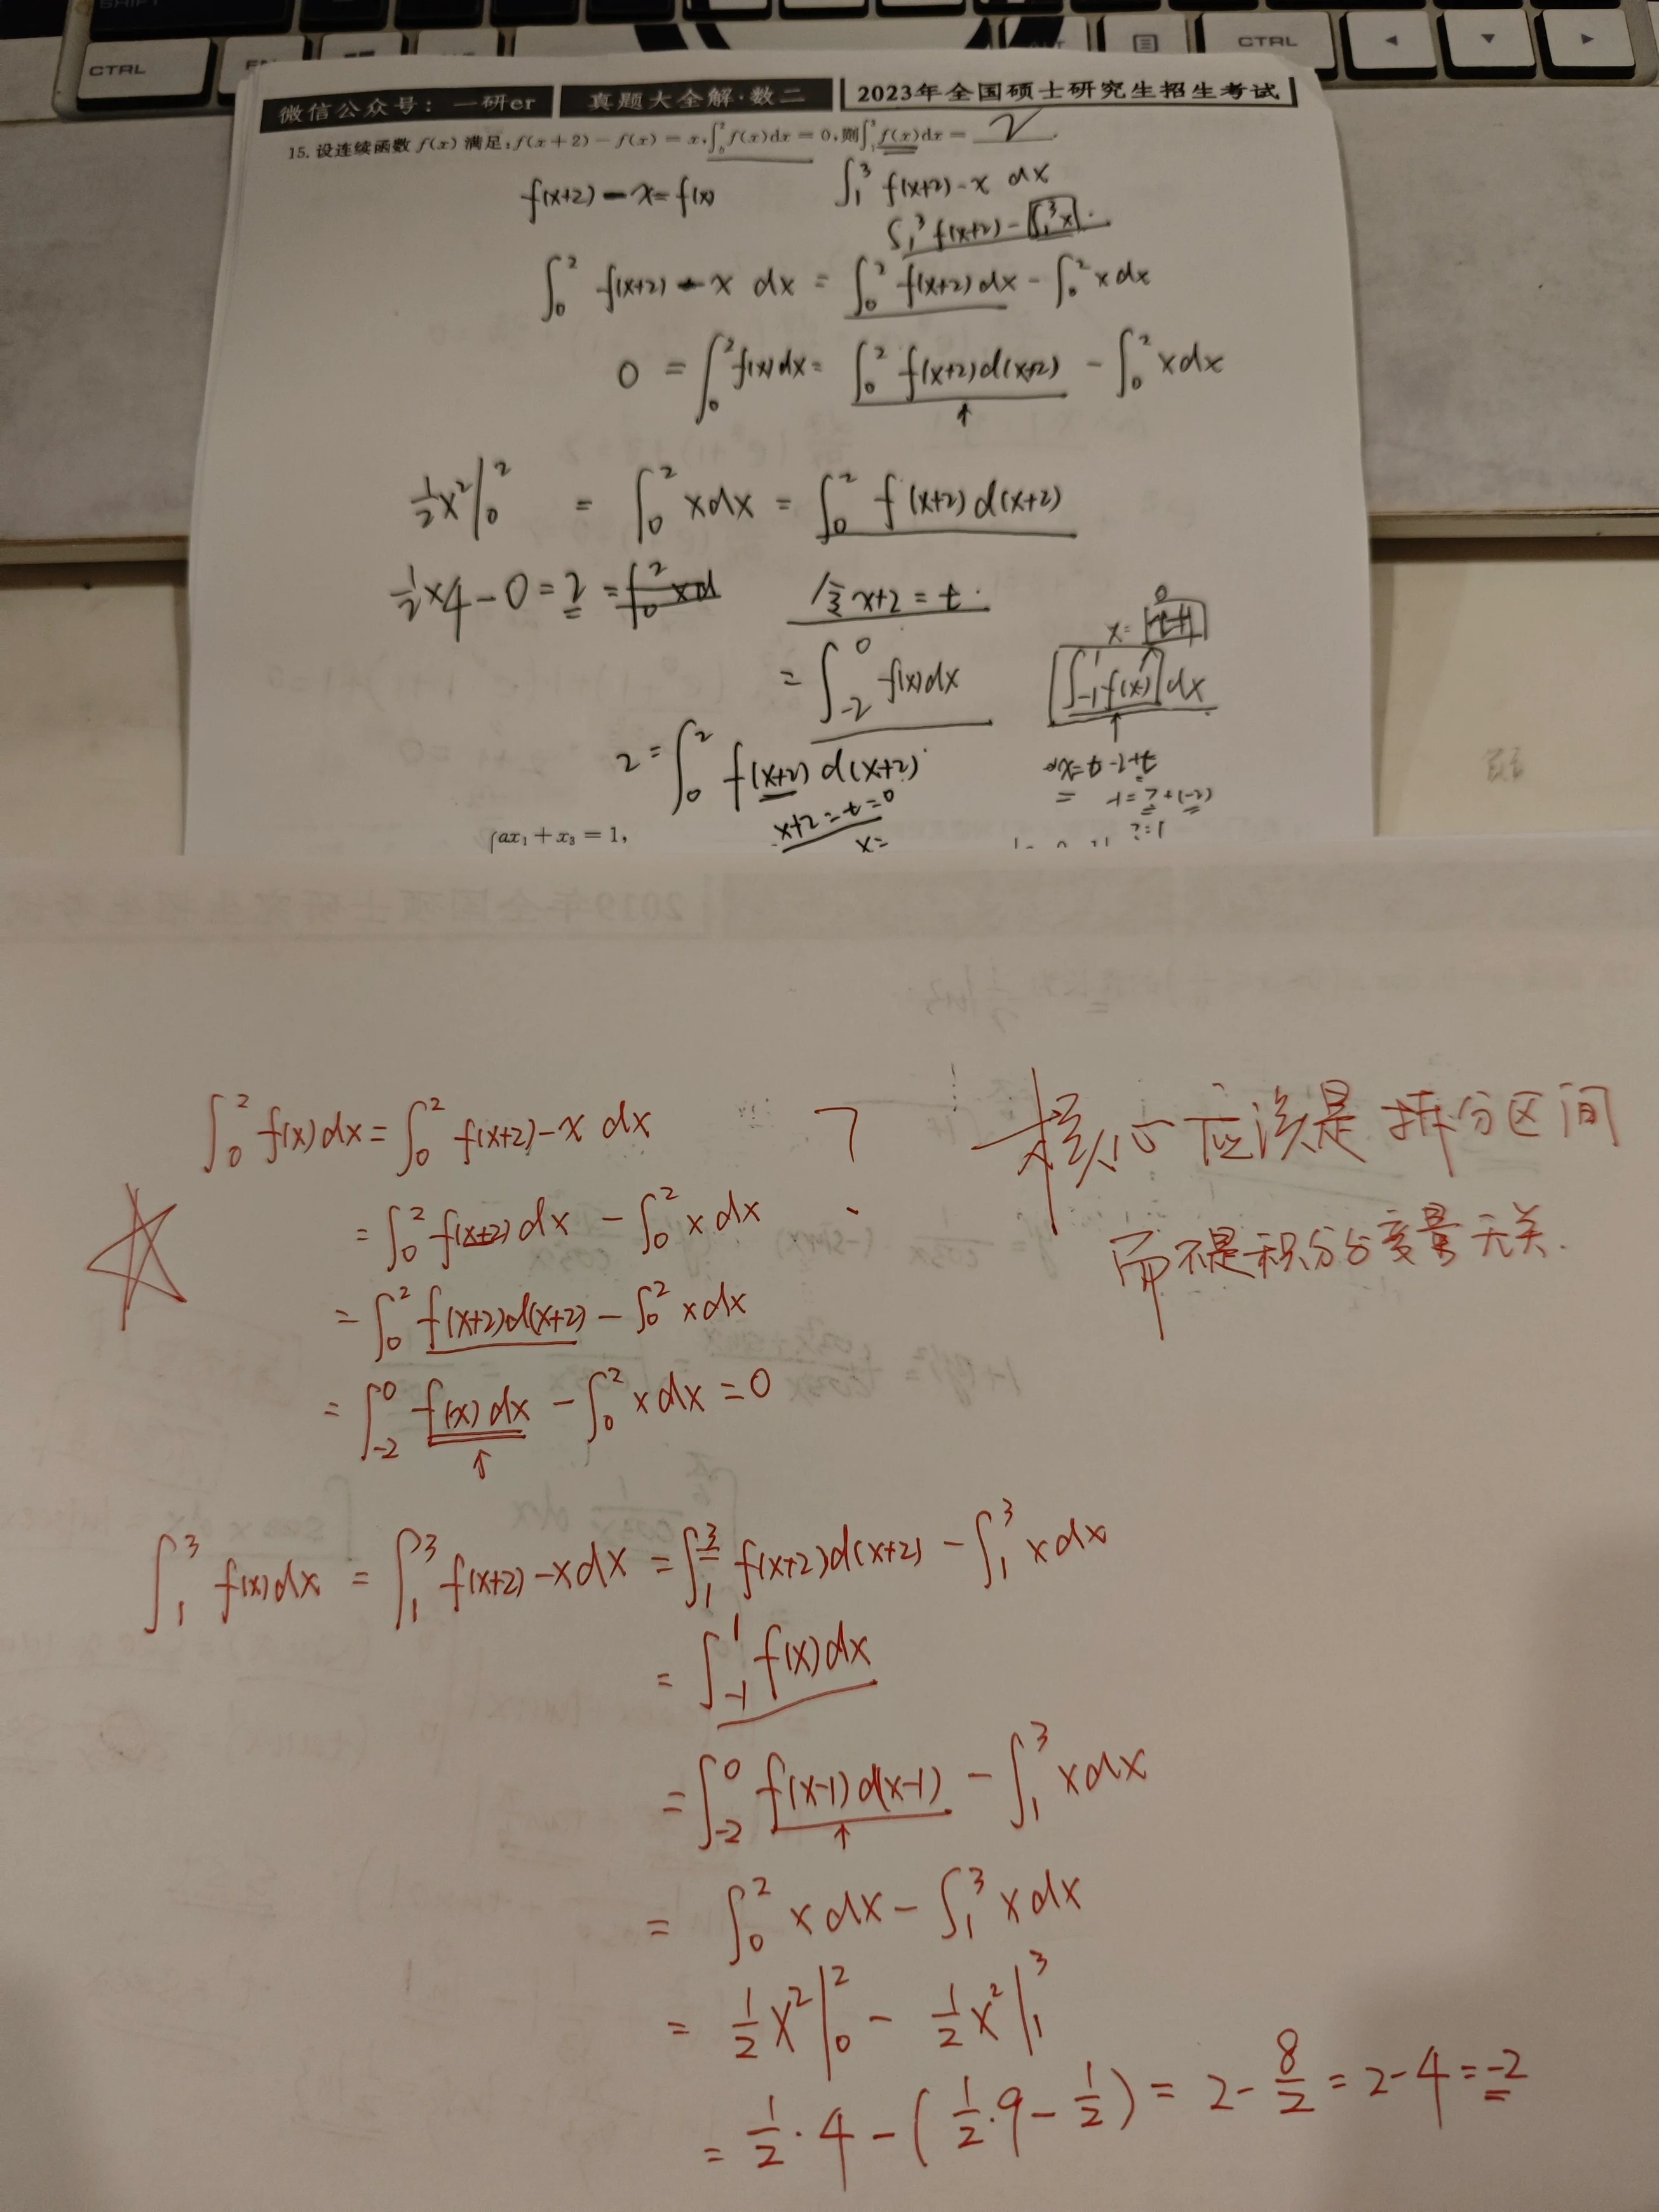 CTRL
CTRL
微信公众号：一研er 真题大全解·数二 2023年全国硕士研究生招生考试
15. 设连续函数 f(x) 满足:f(x+2)-f(x)=x,∫₀² f(x)dx=0,则∫₁³ f(x)dx= 2
f(x+2)-x=f(x)
∫₁³ f(x+2)-x dx
∫₁³ f(x+2)-∫₁³ x
∫₀² f(x+2)-x dx = ∫₀² f(x+2)dx - ∫₀² xdx
0 = ∫₀² f(x)dx = ∫₀² f(x+2)d(x+2) - ∫₀² xdx
½x²|₀² = ∫₀² xdx = ∫₀² f(x+2)d(x+2)
½×4-0=2=
令x+2=t
= ∫₋₂⁰ f(x)dx
∫₋₁¹ f(x) dx
2=∫₀² f(x+2)d(x+2)
x+2=t=0
x=
ax₁+x₃=1,
∫₀² f(x)dx=∫₀² f(x+2)-x dx
=∫₀² f(x+2)dx-∫₀² xdx
=∫₀² f(x+2)d(x+2)-∫₀² xdx
=∫₋₂⁰ f(x)dx-∫₀² xdx=0
?
核心应该是拆分区间
而不是积分与变量无关.
∫₁³ f(x)dx=∫₁³ f(x+2)-xdx=∫₁³ f(x+2)d(x+2)-∫₁³ xdx
=∫₋₁¹ f(x)dx
=∫₋₂⁰ f(x-1)d(x-1)-∫₁³ xdx
=∫₀² xdx-∫₁³ xdx
=½x²|₀²-½x²|₁³
=½·4-(½·9-½)=2-8/2=2-4=-2